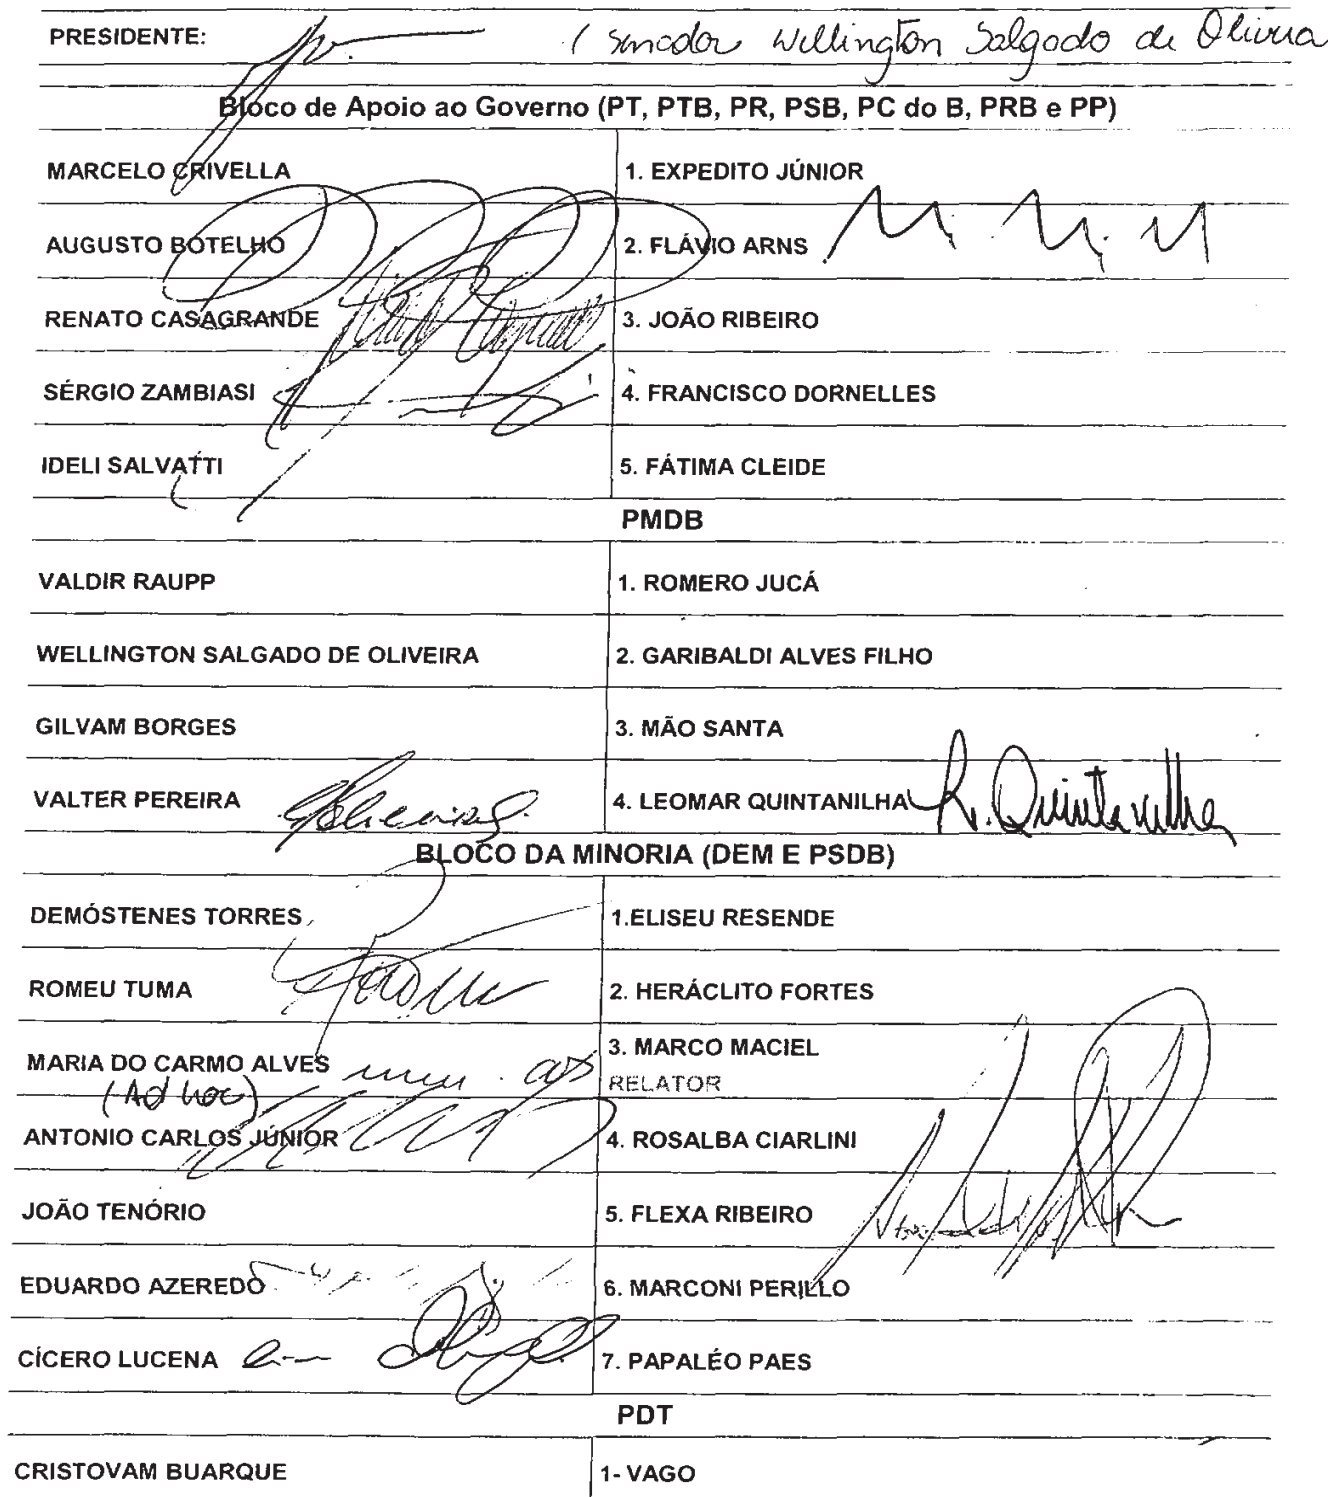 PRESIDENTE: (Senador Wellington Salgado de Oliveira
Bloco de Apoio ao Governo (PT, PTB, PR, PSB, PC do B, PRB e PP)
MARCELO CRIVELLA 1. EXPEDITO JÚNIOR
AUGUSTO BOTELHO 2. FLÁVIO ARNS
RENATO CASAGRANDE 3. JOÃO RIBEIRO
SÉRGIO ZAMBIASI 4. FRANCISCO DORNELLES
IDELI SALVATTI 5. FÁTIMA CLEIDE
PMDB
VALDIR RAUPP 1. ROMERO JUCÁ
WELLINGTON SALGADO DE OLIVEIRA 2. GARIBALDI ALVES FILHO
GILVAM BORGES 3. MÃO SANTA
VALTER PEREIRA 4. LEOMAR QUINTANILHA L. Quintanilha
BLOCO DA MINORIA (DEM E PSDB)
DEMÓSTENES TORRES 1.ELISEU RESENDE
ROMEU TUMA 2. HERÁCLITO FORTES
MARIA DO CARMO ALVES 3. MARCO MACIEL
(Ad hoc) RELATOR
ANTONIO CARLOS JÚNIOR 4. ROSALBA CIARLINI
JOÃO TENÓRIO 5. FLEXA RIBEIRO
EDUARDO AZEREDO 6. MARCONI PERILLO
CÍCERO LUCENA 7. PAPALÉO PAES
PDT
CRISTOVAM BUARQUE 1- VAGO